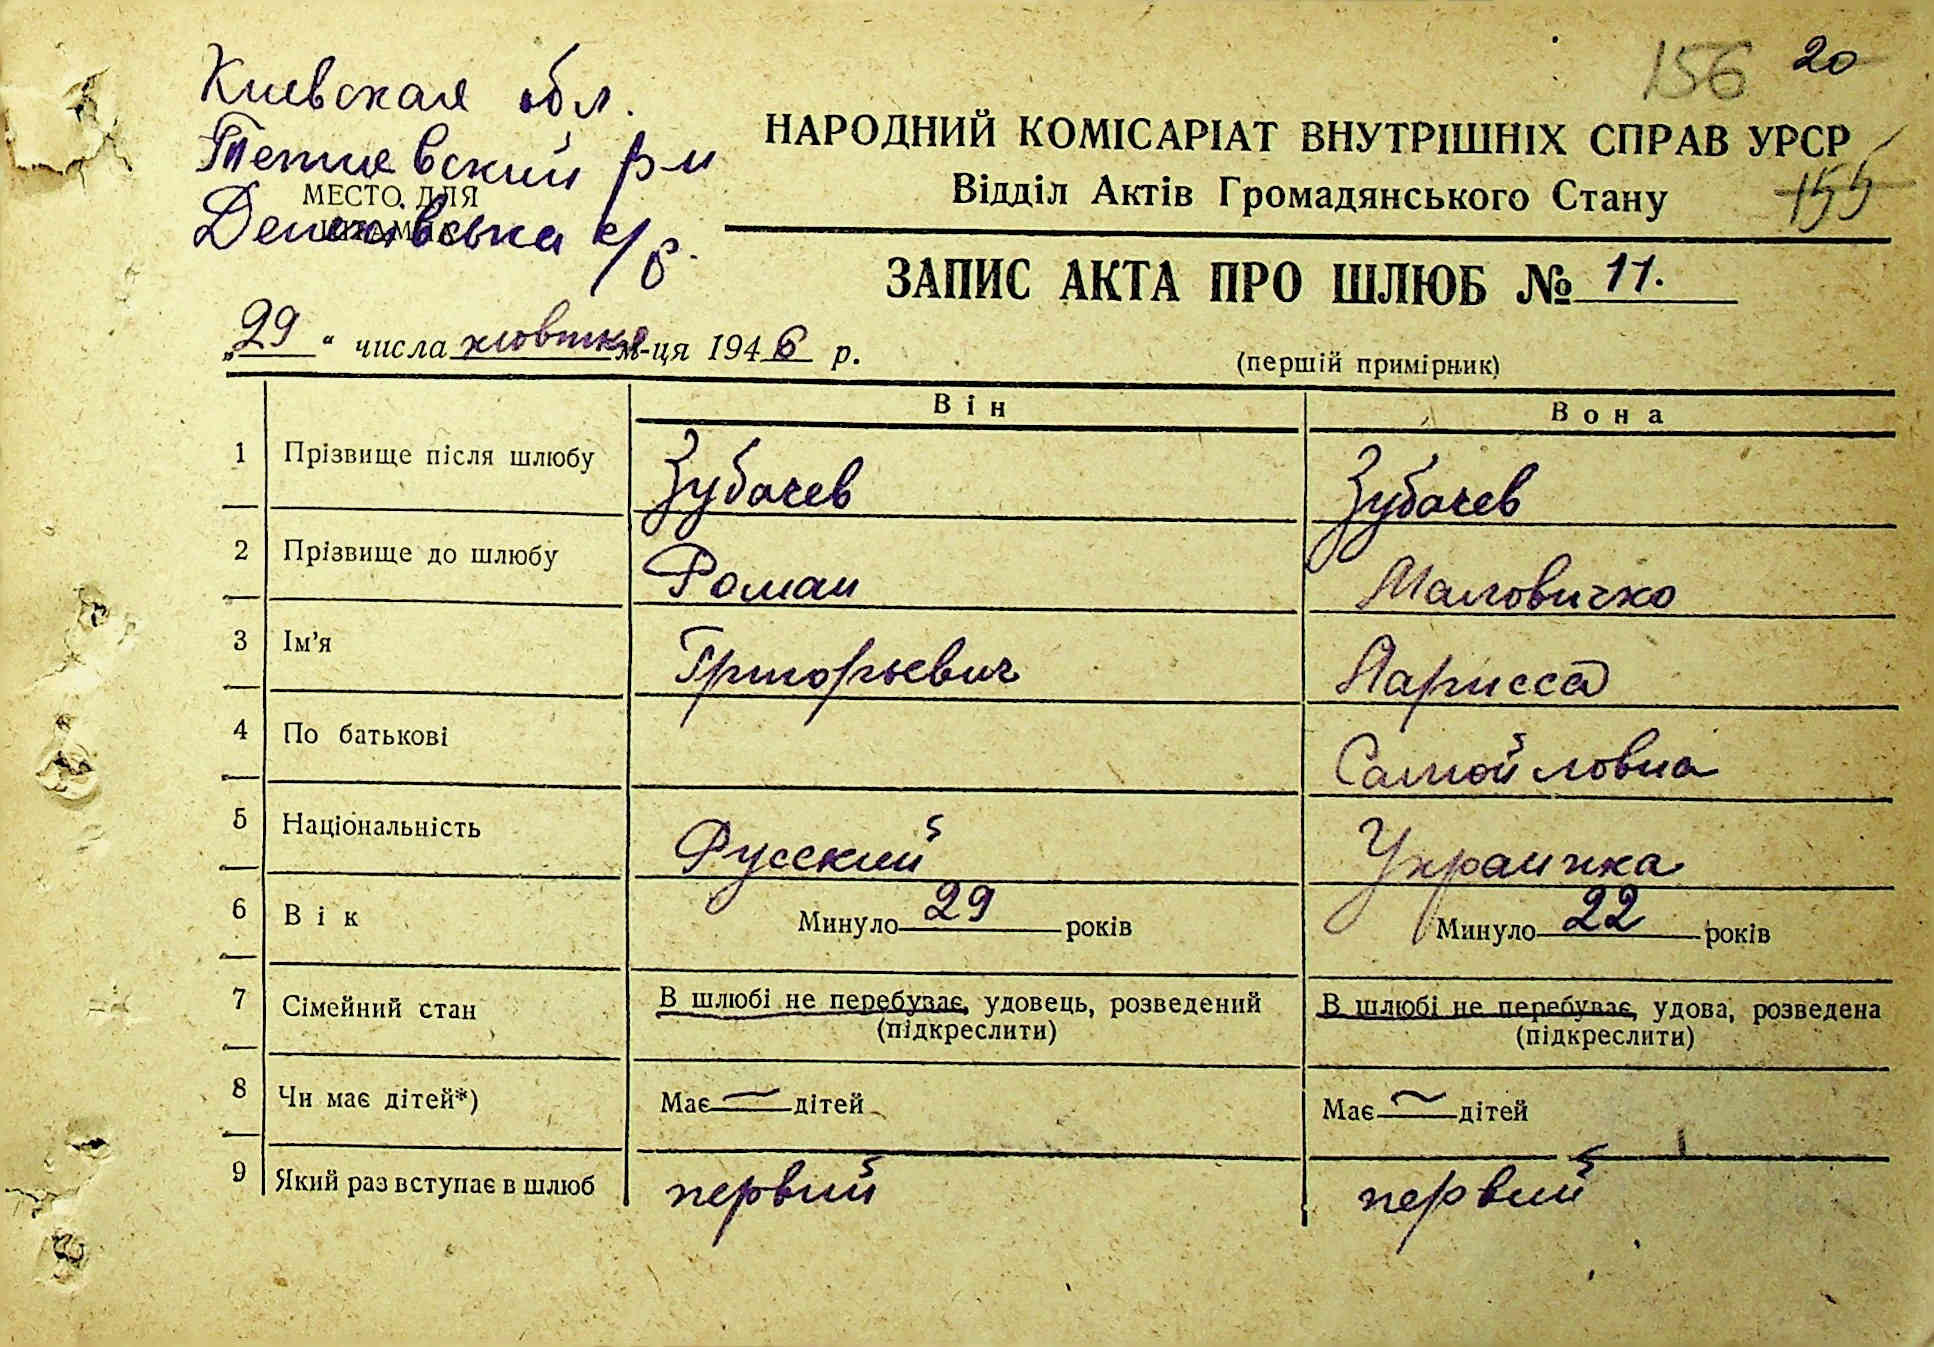 156 20
Киевская обл.
Тетиевский р-н
МЕСТО ДЛЯ
ШТАМПА
с/б.
НАРОДНИЙ КОМІСАРІАТ ВНУТРІШНІХ СПРАВ УРСР
155
Відділ Актів Громадянського Стану
ЗАПИС АКТА ПРО ШЛЮБ № 11.
„29“ числа жовтня м-ця 1946 р.
(першій примірник)
Він Вона
1 Прізвище після шлюбу Зубачев Зубачев
2 Прізвище до шлюбу Роман Маловичко
3 Ім’я Григорьевич Ларисса
4 По батькові Самойловна
5 Національність Русский Украинка
6 Вік Минуло 29 років Минуло 22 років
7 Сімейний стан В шлюбі не перебуває, удовець, розведений В шлюбі не перебуває, удова, розведена
(підкреслити) (підкреслити)
8 Чи має дітей*) Має — дітей Має — дітей
9 Який раз вступає в шлюб первий первий